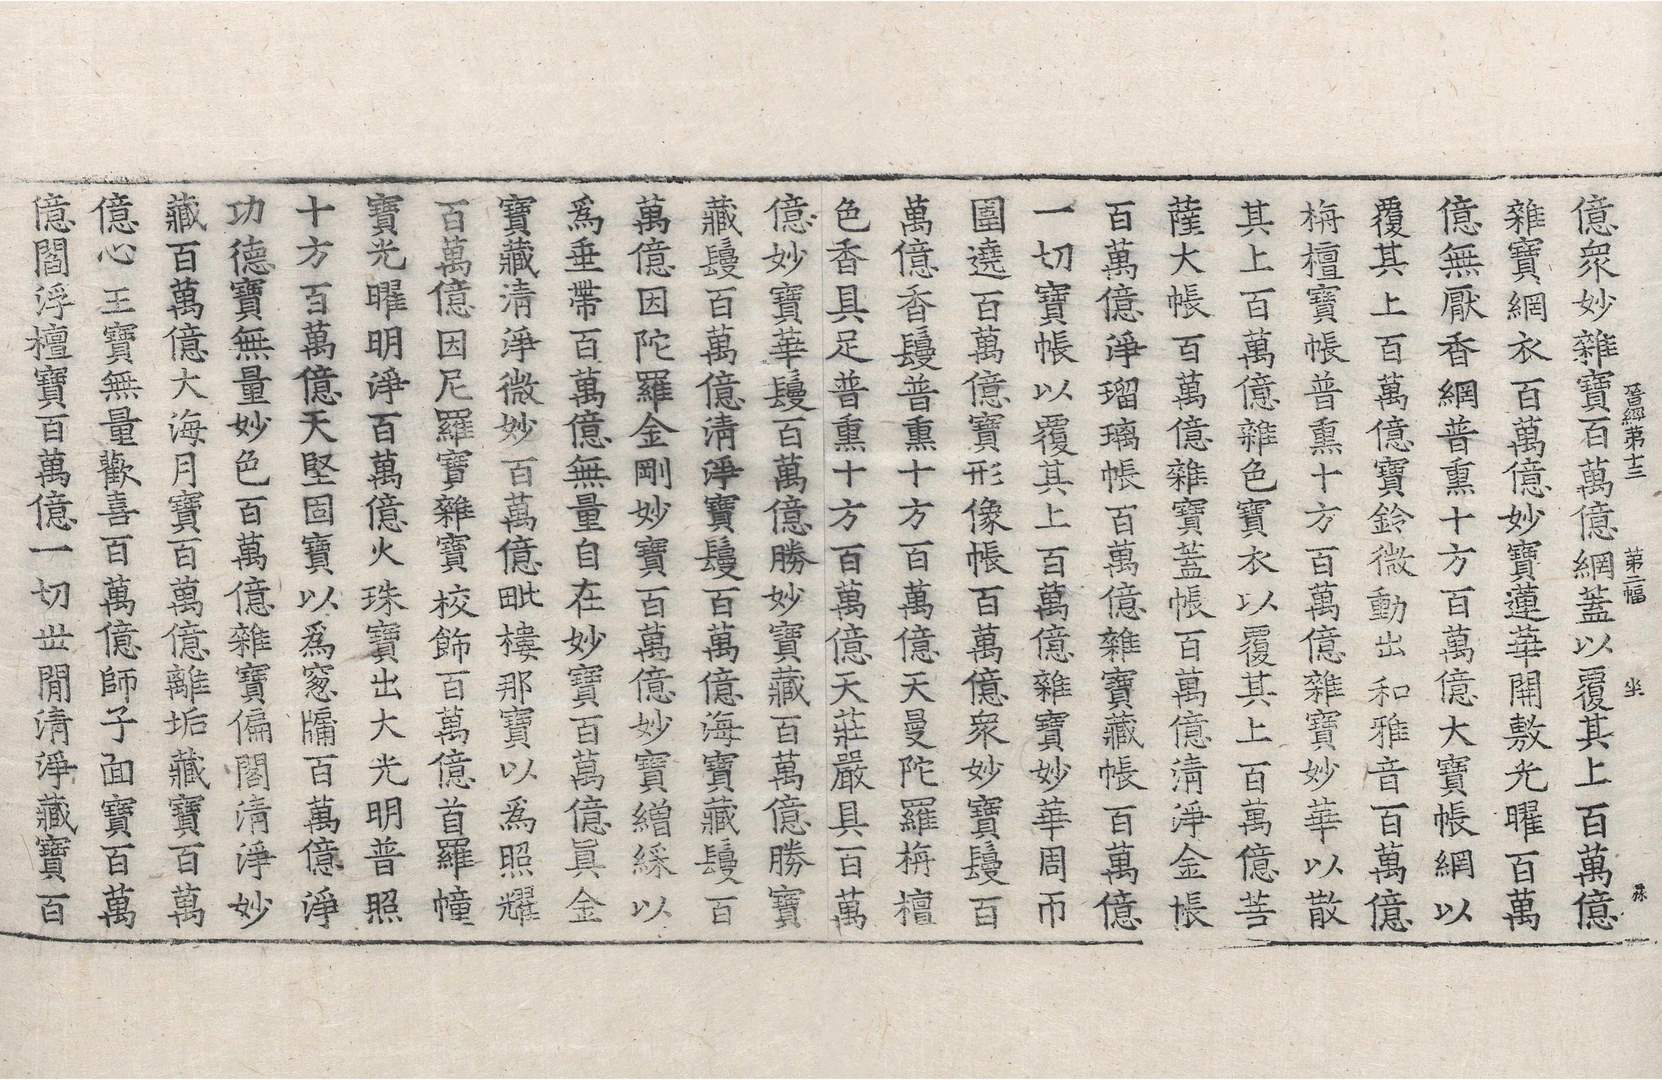 晉經第十三 第二幅 坐
億衆妙雜寶百萬億網蓋以覆其上百萬億
雜寶網衣百萬億妙寶蓮華開敷光曜百萬
億無厭香網普熏十方百萬億大寶帳網以
覆其上百萬億寶鈴微動出和雅音百萬億
栴檀寶帳普熏十方百萬億雜寶妙華以散
其上百萬億雜色寶衣以覆其上百萬億菩
薩大帳百萬億雜寶蓋帳百萬億清淨金帳
百萬億淨瑠璃帳百萬億雜寶藏帳百萬億
一切寶帳以覆其上百萬億雜寶妙華周帀
圍遶百萬億寶形像帳百萬億衆妙寶鬘百
萬億香鬘普熏十方百萬億天曼陀羅栴檀
色香具足普熏十方百萬億天莊嚴具百萬
億妙寶華鬘百萬億勝妙寶藏百萬億勝寶
藏鬘百萬億清淨寶鬘百萬億海寶藏鬘百
萬億因陀羅金剛妙寶百萬億妙寶繒綵以
為垂帶百萬億無量自在妙寶百萬億眞金
寶藏清淨微妙百萬億毗樓那寶以為照耀
百萬億因尼羅寶雜寶校飾百萬億首羅幢
寶光曜明淨百萬億火珠寶出大光明普照
十方百萬億天堅固寶以為窓牖百萬億淨
功德寶無量妙色百萬億雜寶偏閣清淨妙
藏百萬億大海月寶百萬億離垢藏寶百萬
億心王寶無量歡喜百萬億師子面寶百萬
億閻浮檀寶百萬億一切世間清淨藏寶百